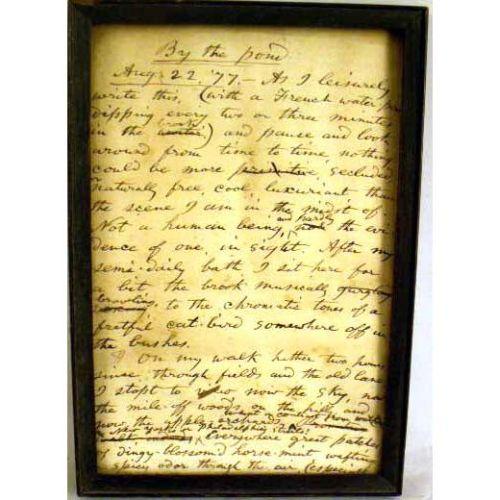 By the pond
Aug 22. '77.— As I leisurely
write this, (with a French water pen
dipping every two or three minutes
in the brook,) and pause and look
around from time to time, nothing
could be more secluded
naturally free, cool, luxuriant than
the scene I am in the midst of.
Not a human being, and hardly the evi
dence of one, in sight. After my
semi-daily bath I sit here for
a bit the brook musically
to the chromatic tones of a
fretful cat-bird somewhere off in
the bushes.
On my walk hither two hours
since, through fields and the old lane
I stopt to view now the sky, now
the mile-off woods on the hill, and
now the apple orchards
Everywhere great patches
of dingy-blossom'd horse-mint wafting
spicy odor through the air (especi